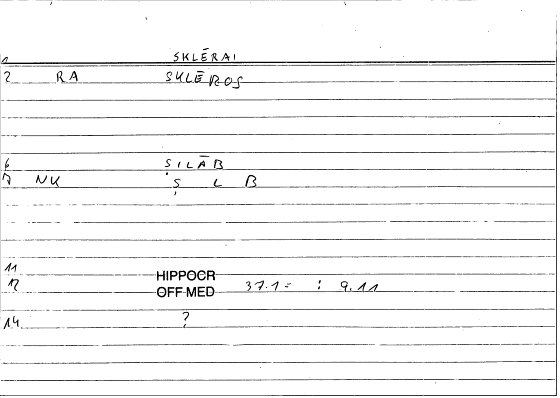 1 SKLĒRAI
2 RA SKLĒROS
6 SILĀB
7 NK Ṣ L B
11 HIPPOCR
12 OFF MED 37.1= : 9.11
14 ?